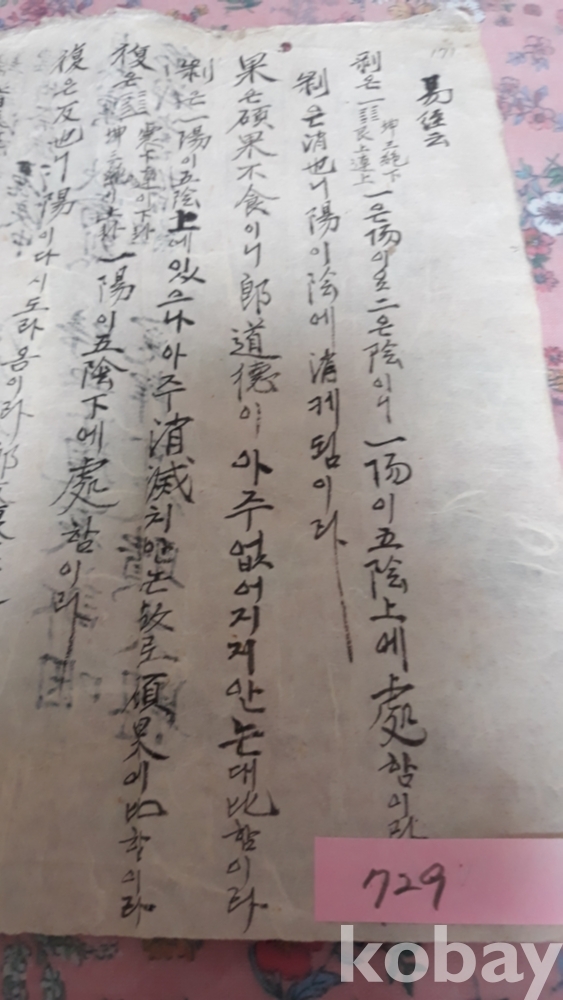 易経云
剝은 ䷖ 坤三絶下 艮上連上 一은 陽이오 二은 陰이니 一陽이 五陰上에 上處함이라
剝은 消也니 陽이 陰에 消케 됨이라
果은 碩果不食이니 郎道德이 아주 없어지지 안는대 比함이라
剝은 一陽이 五陰上에 있으나 아주 消滅치 안는 故로 碩果에 比함이라
復은 ䷗ 一陽이 五陰下에 處함이라
復은 反也니 陽이 다시 도라옴이라
729
kobay